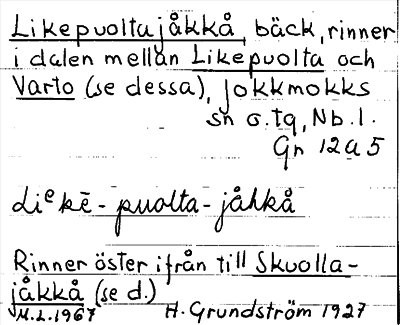 Likepuoltajåkkå, bäck, rinner
i dalen mellan Likepuolta och
Varto (se dessa), Jokkmokks
sn o.tg, Nb.l.
Gn 12a5
Liᵉkē-puolta-jåhkå
Rinner öster ifrån till Skuolla-
jåkkå (se d.)
M.L.1967 H. Grundström 1927